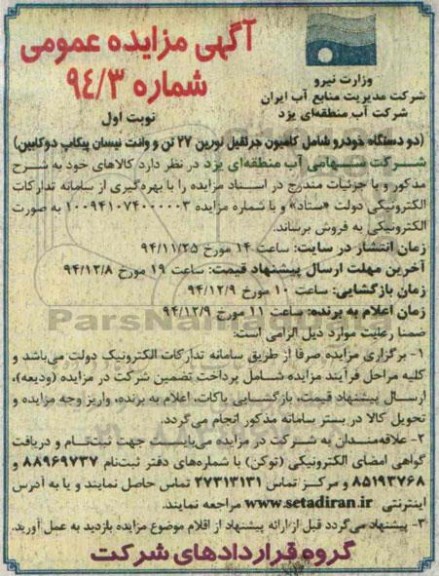 آگهی مزایده عمومی
شماره ۹۴/۳
نوبت اول
وزارت نیرو
شرکت مدیریت منابع آب ایران
شرکت آب منطقه‌ای یزد
(دو دستگاه خودرو شامل کامیون جرثقیل نورین ۲۷ تن و وانت نیسان پیکاپ دوکابین)
شرکت سهامی آب منطقه‌ای یزد در نظر دارد کالاهای خود به شرح
مذکور و با جزئیات مندرج در اسناد مزایده را با بهره‌گیری از سامانه تدارکات
الکترونیکی دولت «ستاد» و با شماره مزایده ۱۰۰۹۴۱۰۷۴۰۰۰۰۰۳ به صورت
الکترونیکی به فروش برساند.
زمان انتشار در سایت: ساعت ۱۴ مورخ ۹۴/۱۱/۲۵
آخرین مهلت ارسال پیشنهاد قیمت: ساعت ۱۹ مورخ ۹۴/۱۲/۸
زمان بازگشایی: ساعت ۱۰ مورخ ۹۴/۱۲/۹
زمان اعلام به برنده: ساعت ۱۱ مورخ ۹۴/۱۲/۹
ضمنا رعایت موارد ذیل الزامی است:
۱- برگزاری مزایده صرفا از طریق سامانه تدارکات الکترونیک دولت می‌باشد و
کلیه مراحل فرآیند مزایده شامل پرداخت تضمین شرکت در مزایده (ودیعه)،
ارسال پیشنهاد قیمت، بازگشایی پاکات، اعلام به برنده، واریز وجه مزایده و
تحویل کالا در بستر سامانه مذکور انجام می‌گردد.
۲- علاقه‌مندان به شرکت در مزایده می‌بایست جهت ثبت‌نام و دریافت
گواهی امضای الکترونیکی (توکن) با شماره‌های دفتر ثبت‌نام ۸۸۹۶۹۷۳۷ و
۸۵۱۹۳۷۶۸ و مرکز تماس ۲۷۳۱۳۱۳۱ تماس حاصل نمایند و یا به آدرس
اینترنتی www.setadiran.ir مراجعه نمایند.
۳- پیشنهاد می‌گردد قبل از ارائه پیشنهاد از اقلام موضوع مزایده بازدید به عمل آورید.
گروه قراردادهای شرکت